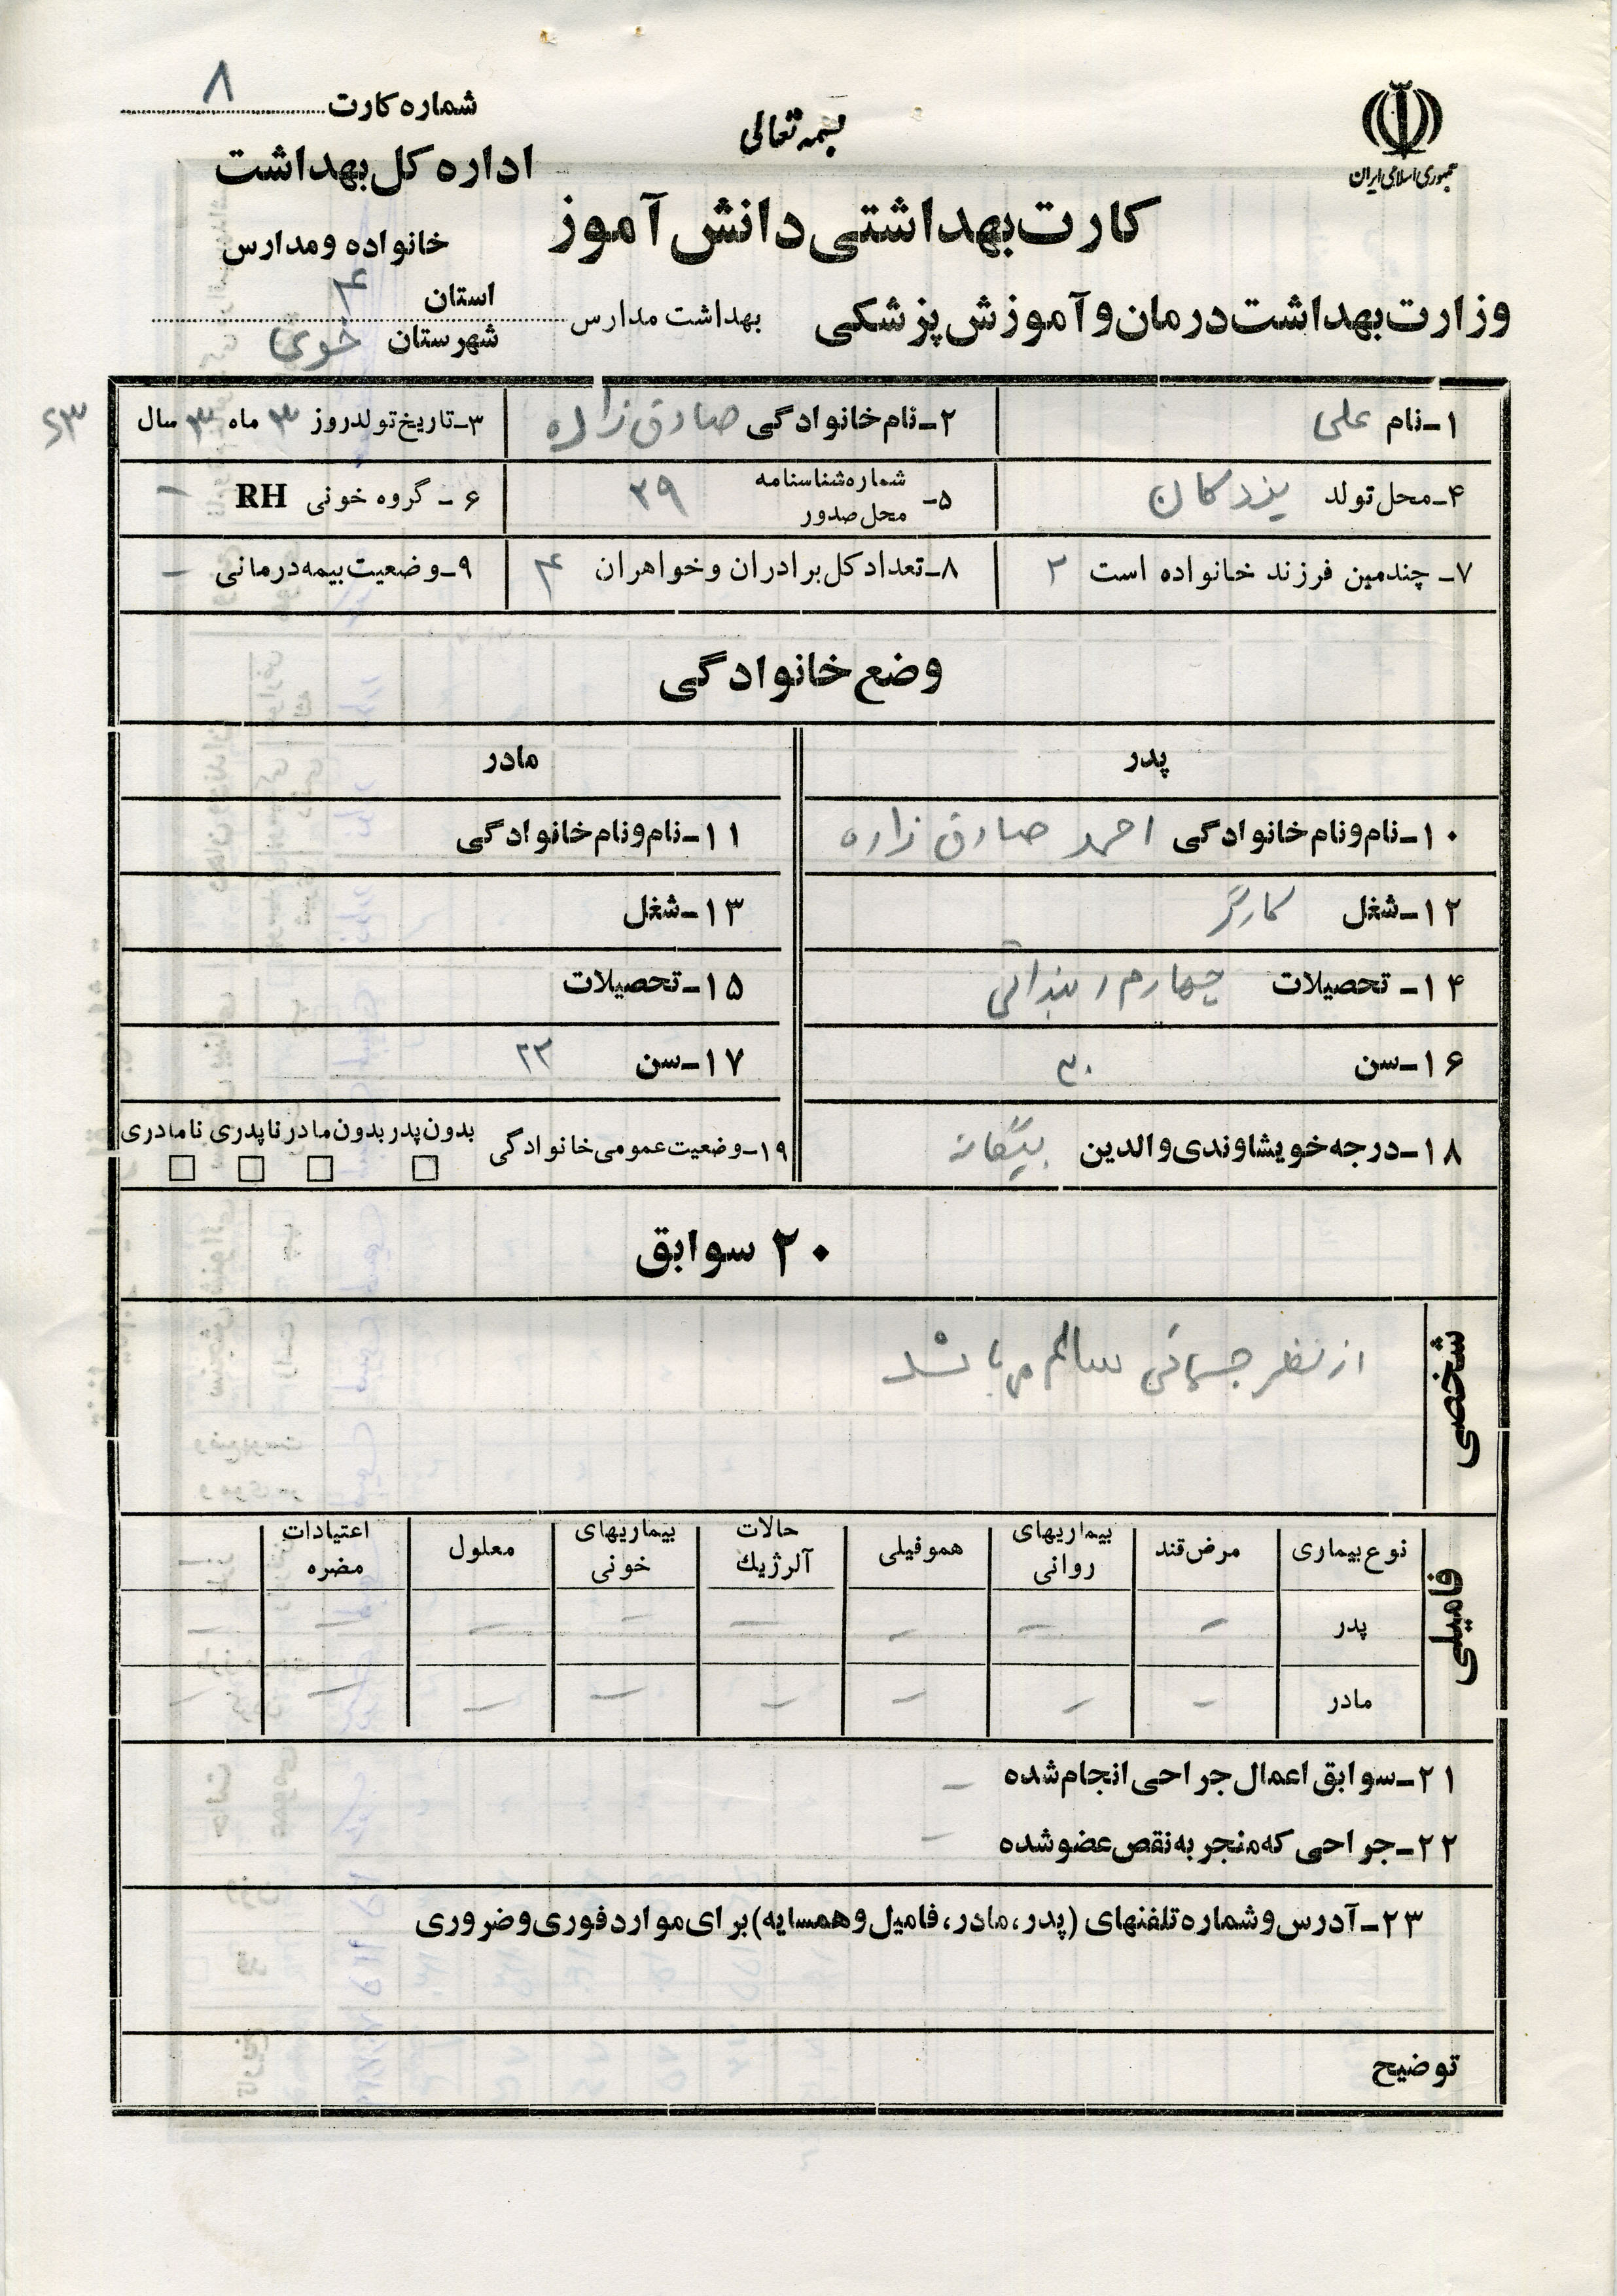 جمهوری اسلامی ایران
بسمه تعالی
شماره کارت ۸
اداره کل بهداشت
خانواده و مدارس
کارت بهداشتی دانش آموز
وزارت بهداشت درمان و آموزش پزشکی
بهداشت مدارس
استان
شهرستان خوی
۱ـ نام علی
۲ـ نام خانوادگی صادق زاده
۳ـ تاریخ تولد روز ۳ ماه ۳ سال ۶۳
۴ـ محل تولد یزدکان
۵ـ شماره شناسنامه ۲۹
محل صدور
۶ ـ گروه خونی RH –
۷ـ چندمین فرزند خانواده است ۲
۸ـ تعداد کل برادران و خواهران ۴
۹ـ وضعیت بیمه درمانی –
وضع خانوادگی
پدر
مادر
۱۰ـ نام و نام خانوادگی احمد صادق زاده
۱۱ـ نام و نام خانوادگی
۱۲ـ شغل کارگر
۱۳ـ شغل
۱۴ـ تحصیلات چهارم ابتدائی
۱۵ـ تحصیلات
۱۶ـ سن ۳۰
۱۷ـ سن ۲۲
۱۸ـ درجه خویشاوندی والدین بیگانه
۱۹ـ وضعیت عمومی خانوادگی بدون پدر بدون مادر ناپدری نامادری
۲۰ سوابق
شخصی
از نظر جسمانی سالم می باشد
فامیلی
نوع بیماری مرض قند بیماریهای روانی هموفیلی حالات آلرژیک بیماریهای خونی معلول اعتیادات مضره
پدر – – – – – – – –
مادر – – – – – – – –
۲۱ـ سوابق اعمال جراحی انجام شده –
۲۲ـ جراحی که منجر به نقص عضو شده –
۲۳ـ آدرس و شماره تلفنهای (پدر، مادر، فامیل و همسایه) برای موارد فوری و ضروری
توضیح